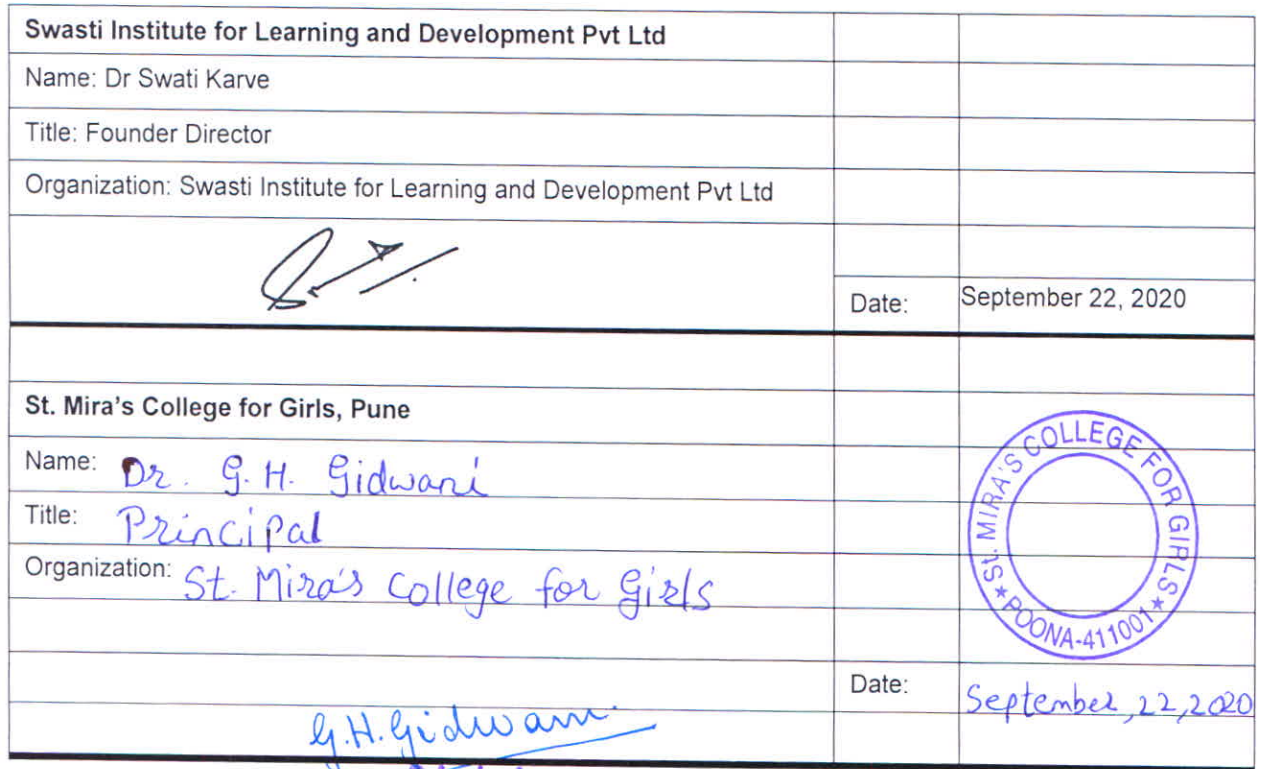 Swasti Institute for Learning and Development Pvt Ltd
Name: Dr Swati Karve
Title: Founder Director
Organization: Swasti Institute for Learning and Development Pvt Ltd
Date: September 22, 2020
St. Mira's College for Girls, Pune
Name: Dr. G. H. Gidwani
Title: Principal
Organization: St. Mira's College for Girls
St. MIRA'S COLLEGE FOR GIRLS
★ POONA-411001 ★
Date: September, 22, 2020
G.H. Gidwani